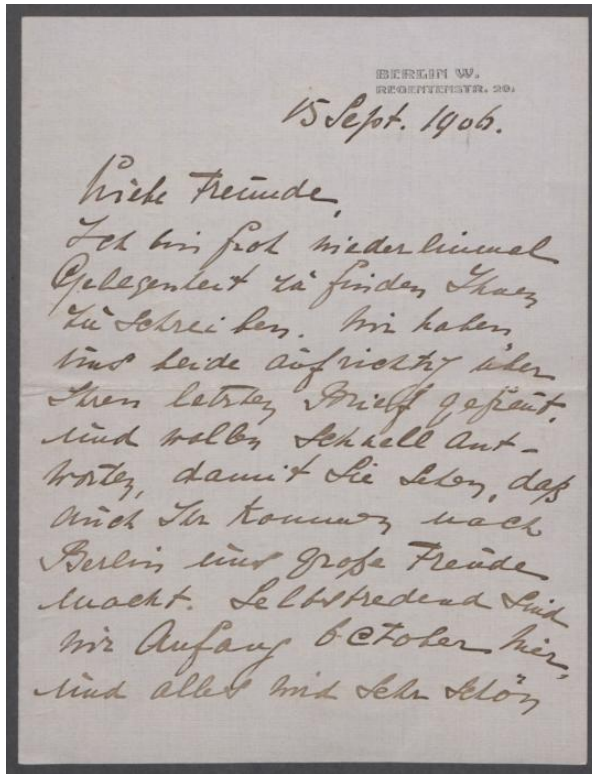 BERLIN W.
REGENTENSTR. 20.
15 Sept. 1906.
Liebe Freunde,
Ich bin froh wieder einmal
Gelegenheit zu finden Ihnen
zu schreiben. Wir haben
uns beide aufrichtig über
Ihren letzten Brief gefreut,
und wollen schnell ant-
worten, damit Sie sehen, daß
auch Ihr Kommen nach
Berlin uns große Freude
macht. Selbstredend sind
wir Anfang October hier,
und alles wird sehr schön